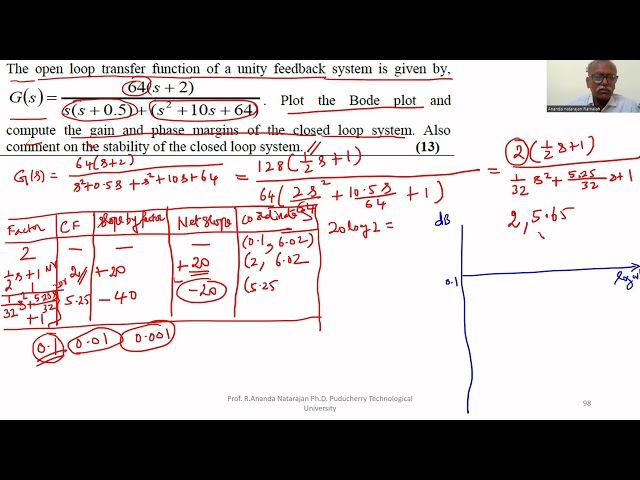 The open loop transfer function of a unity feedback system is given by,
G(s) = 64(s + 2) / s(s + 0.5) + (s² + 10s + 64) . Plot the Bode plot and
compute the gain and phase margins of the closed loop system. Also
comment on the stability of the closed loop system. (13)
Ananda natarajan Ramaiah
G(s) = 64(s+2) / s²+0.5s+s²+10s+64 = 128(½s+1) / 64(2s²/64 + 10.5s/64 + 1) = 2(½s+1) / 1/32 s² + 5.25/32 s+1
Factor CF Slope by factor Net slope Coordinates
2 — — — (0.1, 6.02)
½s+1 2 +20 +20 (2, 6.02
1 / 1/32 s²+5.25/32 s+1 5.25 −40 −20 (5.25
20 log 2 =
2, 5.65
dB
0.1
log ω
0.1 0.01 0.001
Prof. R.Ananda Natarajan Ph.D. Puducherry Technological
University
98